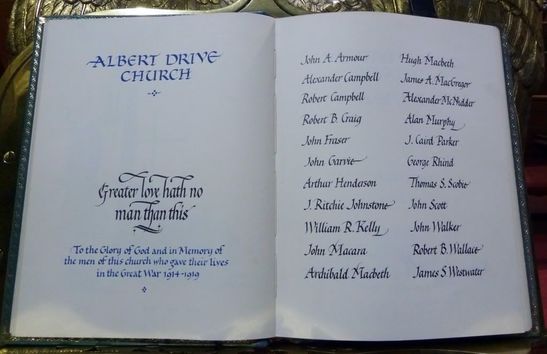 ALBERT DRIVE
CHURCH
Greater love hath no
man than this
To the Glory of God and in Memory of
the men of this church who gave their lives
in the Great War 1914-1919
John A. Armour
Alexander Campbell
Robert Campbell
Robert B. Craig
John Fraser
John Garvie
Arthur Henderson
J. Ritchie Johnstone
William R. Kelly
John Macara
Archibald Macbeth
Hugh Macbeth
James A. MacGregor
Alexander McNidder
Alan Murphy
J. Caird Parker
George Rhind
Thomas S. Scobie
John Scott
John Walker
Robert B. Wallace
James S Westwater